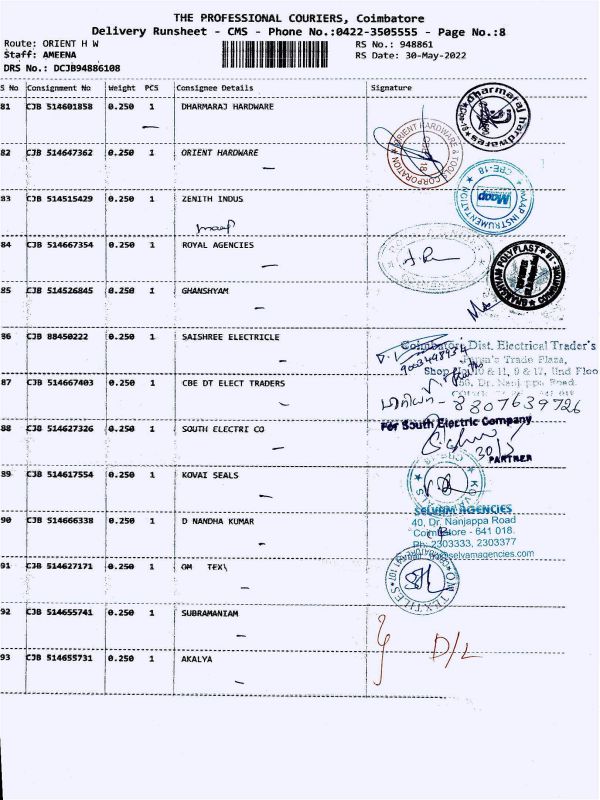 THE PROFESSIONAL COURIERS, Coimbatore
Delivery Runsheet - CMS - Phone No.:0422-3505555 - Page No.:8
Route: ORIENT H W
RS No.: 948861
Staff: AMEENA
RS Date: 30-May-2022
DRS No.: DCJB94886108
S No Consignment No Weight PCS Consignee Details Signature
81 CJB 514601858 0.250 1 DHARMARAJ HARDWARE
dharmaraj hardwares
82 CJB 514647362 0.250 1 ORIENT HARDWARE
ORIENT HARDWARE & TOOLS CORPORATION
CBE-18
83 CJB 514515429 0.250 1 ZENITH INDUS
maap
MAAP INSTRUMENTATION
Maap
84 CJB 514667354 0.250 1 ROYAL AGENCIES
85 CJB 514526845 0.250 1 GHANSHYAM
GHANSHYAM POLYPLAST
86 CJB 88450222 0.250 1 SAISHREE ELECTRICLE
Coimbatore Dist. Electrical Trader's
Trade Plaza,
Shop 10 & 11, 9 & 12, IInd Floo
87 CJB 514667403 0.250 1 CBE DT ELECT TRADERS
Dr. Nanjappa Road
8807639726
88 CJB 514627326 0.250 1 SOUTH ELECTRI CO
For South Electric Company
30/5
PARTNER
89 CJB 514617554 0.250 1 KOVAI SEALS
KOVAI
SELVAM AGENCIES
90 CJB 514666338 0.250 1 D NANDHA KUMAR
40, Dr. Nanjappa Road
Coimbatore - 641 018.
Ph: 2303333, 2303377
@selvamagencies.com
91 CJB 514627171 0.250 1 OM TEX\
OM TEXTILES
92 CJB 514655741 0.250 1 SUBRAMANIAM
D/L
93 CJB 514655731 0.250 1 AKALYA